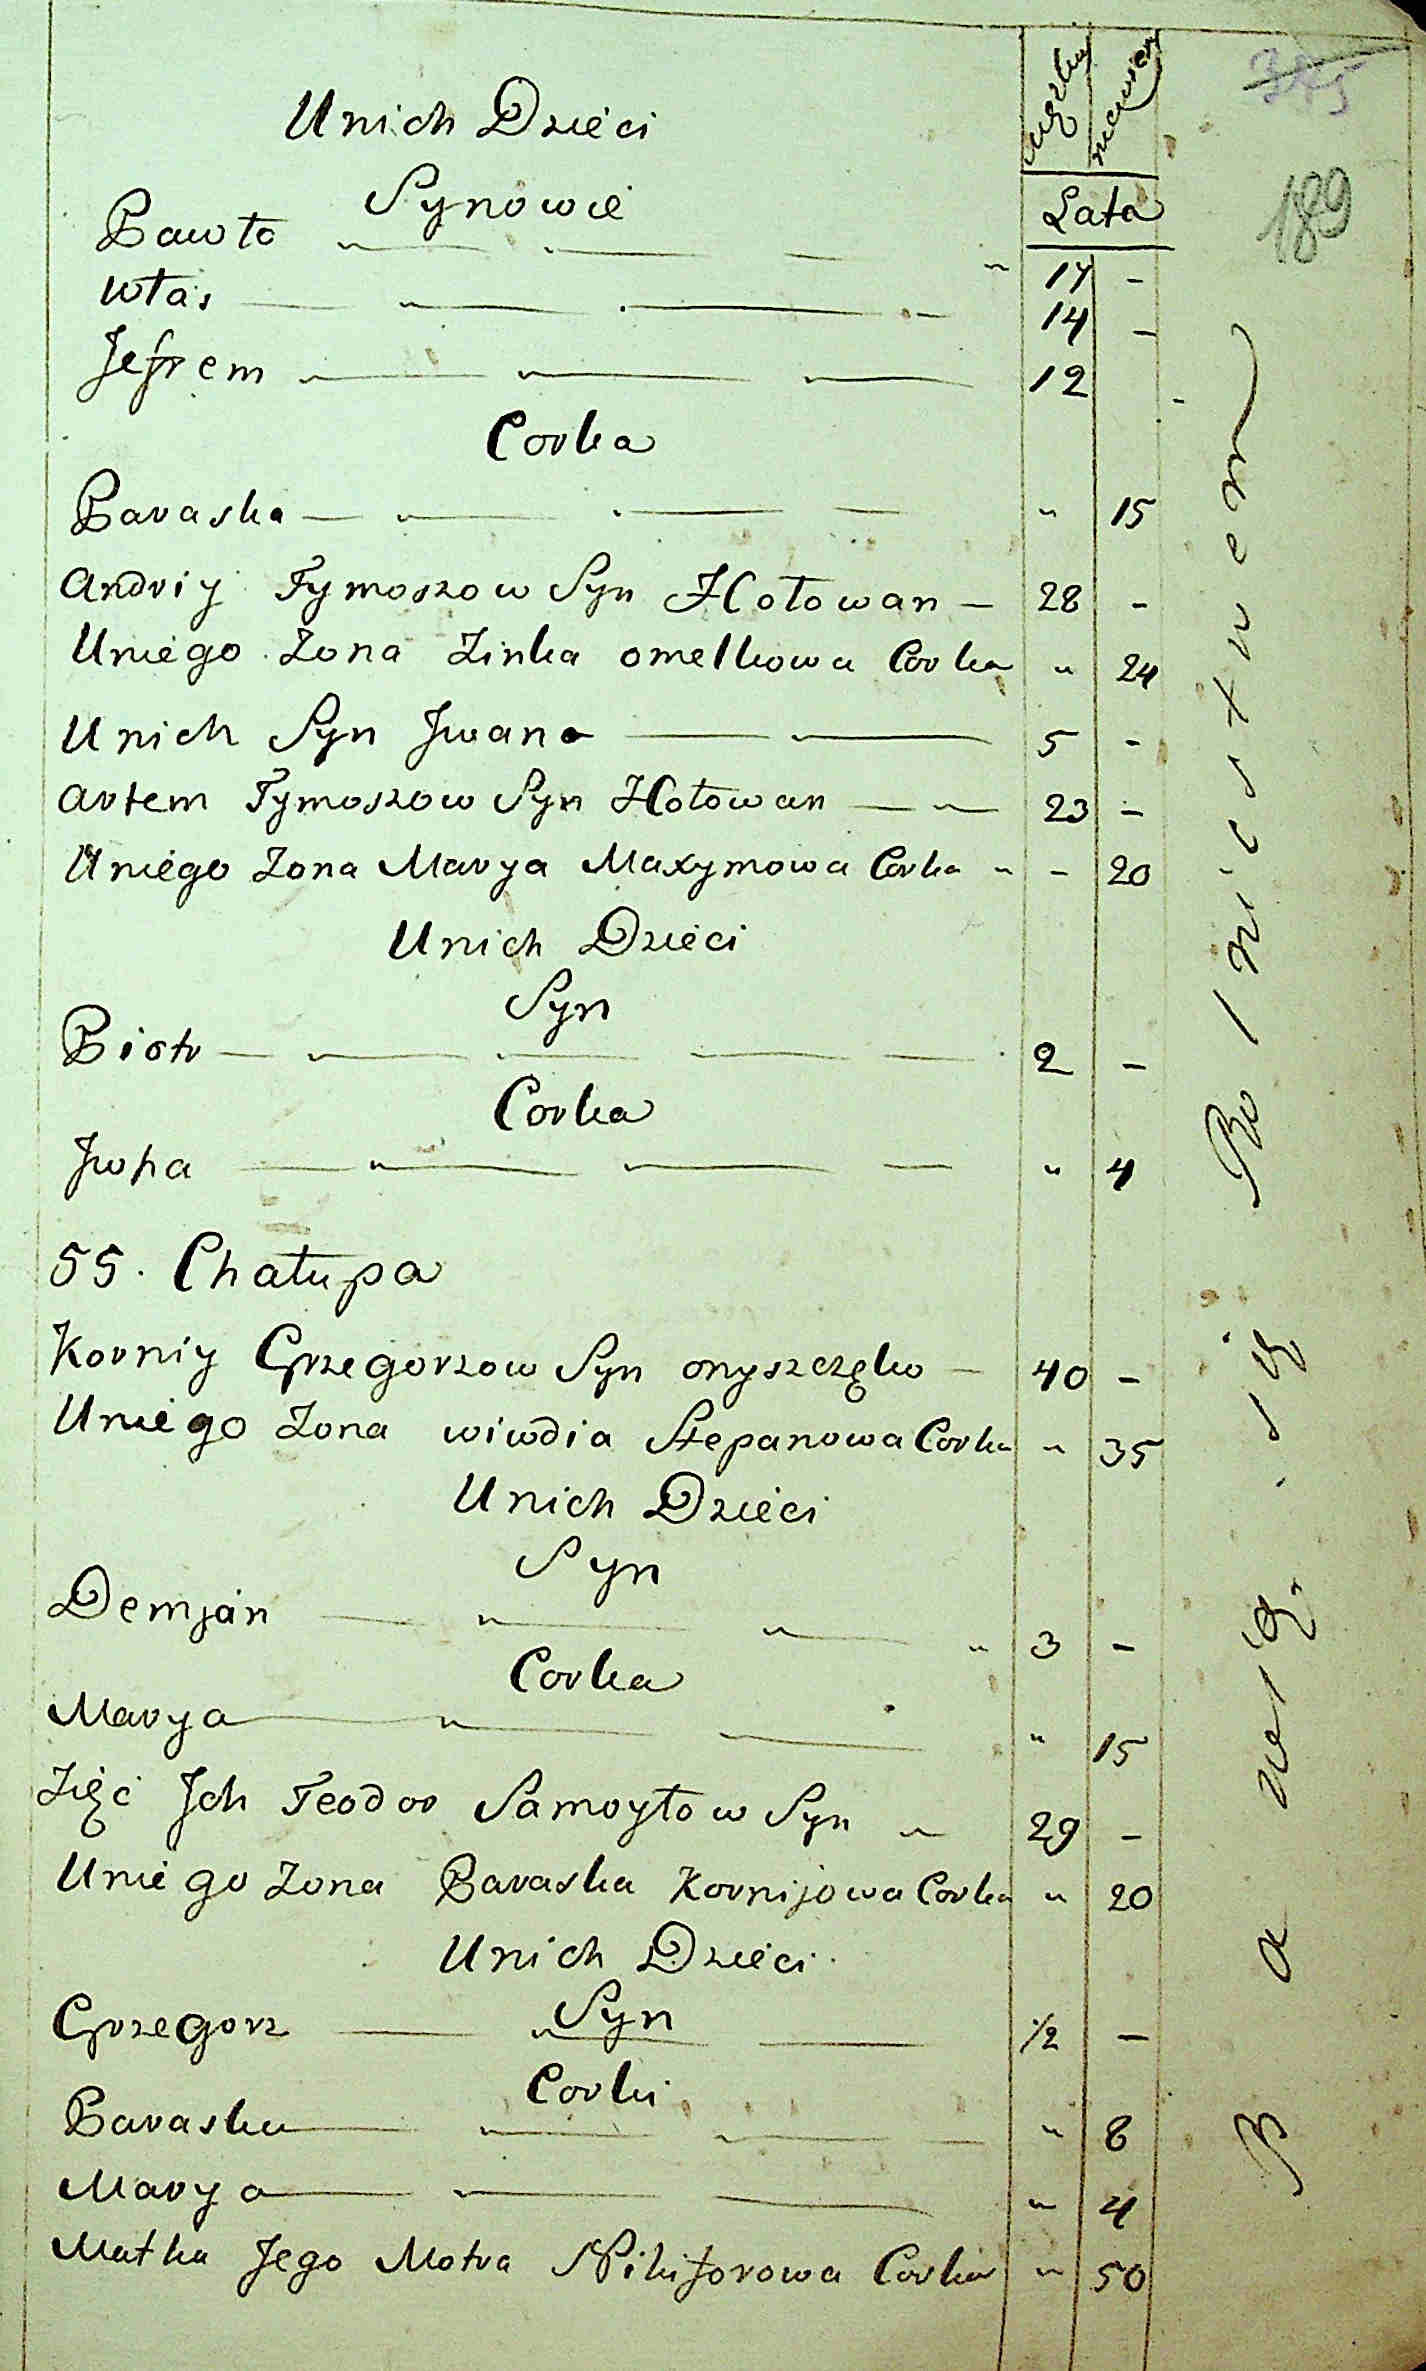 375
189
Unich Dzieci
Synowie
Lata
Pawło 17 -
Własz 14 -
Jefrem 12 -
Corka
Paraska " 15
Andriy Tymoszow Syn Hołowan 28 -
Uniego Zona Zinka omelkowa Corka " 24
Unich Syn Jwan 5 -
artem Tymoszow Syn Hołowan 23 -
Uniego Zona Marya Maxymowa Corka - 20
Unich Dzieci
Syn
Piotr 2 -
Corka
Jwha " 4
55. Chałupa
Korniy Grzegorzow Syn onyszczęko 40 -
Uniego Zona wiwdia Stepanowa Corka " 35
Unich Dzieci
Syn
Demjan 3 -
Corka
Marya " 15
Zięć Jch Teodor Samoyłow Syn 29 -
Uniego Zona Paraska Kornijowa Corka " 20
Unich Dzieci
Syn
Grzegorz 1/2 -
Corki
Paraska " 8
Marya " 4
Matka Jego Motra Nikiforowa Corka " 50
Bawią się Rolnictwem